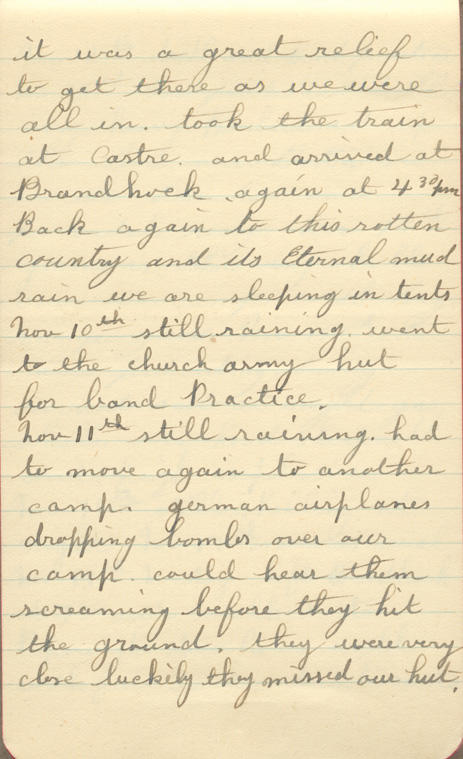 it was a great relief
to get there as we were
all in. took the train
at Castre. and arrived at
Brandhoek again at 4 30pm
Back again to this rotten
country and its Eternal mud
rain we are sleeping in tents
Nov 10th still raining. went
to the church army hut
for band Practice.
Nov 11th still raining. had
to move again to another
camp. german airplanes
dropping bombs over our
camp. could hear them
screaming before they hit
the ground. they were very
close luckily they missed our hut.